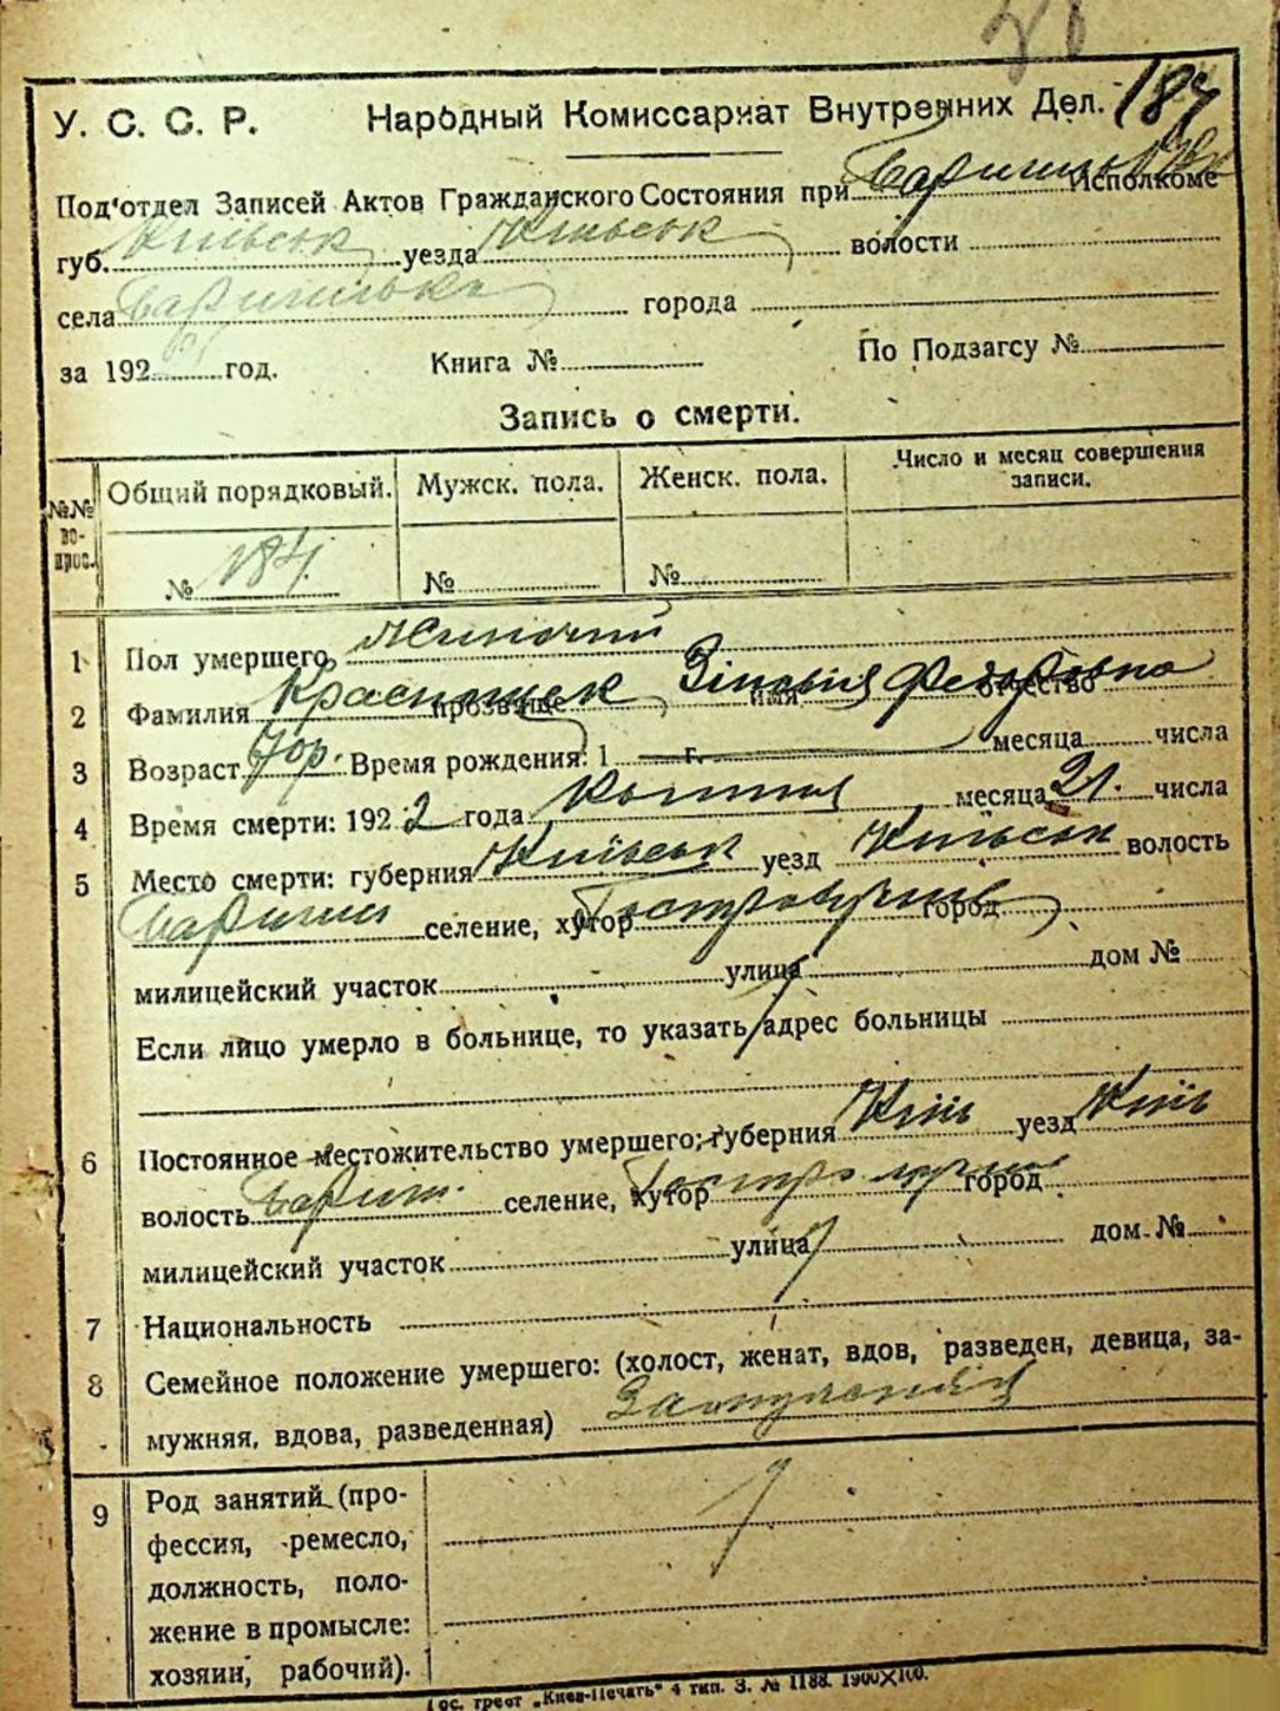 У. С. С. Р. Народный Комиссариат Внутренних Дел. 184
Под'отдел Записей Актов Гражданского Состояния при Исполкоме
губ. Київськ уезда Київськ волости
села Баришівка города
за 192 год. Книга № По Подзагсу №
Запись о смерти.
№№ вопрос. Общий порядковый. Мужск. пола. Женск. пола. Число и месяц совершения записи.
№ 184. № №
1 Пол умершего Жиночий
2 Фамилия прозвище имя Зіновія отчество Федоровна
3 Возраст 7 ор. Время рождения: 1 г. месяца числа
4 Время смерти: 1922 года месяца 21. числа
5 Место смерти: губерния Київськ уезд Київськ волость
Баришів селение, хутор город
милицейский участок улица дом №
Если лицо умерло в больнице, то указать адрес больницы
6 Постоянное местожительство умершего; губерния Київ уезд Київ
волость Бариш. селение, хутор город
милицейский участок улица дом №
7 Национальность
8 Семейное положение умершего: (холост, женат, вдов, разведен, девица, за-
мужняя, вдова, разведенная)
9 Род занятий (про-
фессия, ремесло,
должность, поло-
жение в промысле:
хозяин, рабочий).
Гос. трест „Киев-Печать" 4 тип. З. № 1188. 1900×100.